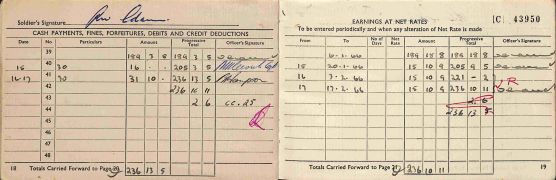 Soldier's Signature
CASH PAYMENTS, FINES, FORFEITURES, DEBITS AND CREDIT DEDUCTIONS
Date No. Particulars Amount Progressive Total Officer's Signature
39 189 3 5
40
15 41 30 16 - - 205 3 5
16-17 42 30 31 10 - 236 13 5
43 236 10 11
44 2 6 cc. 25
45
46
47
48
18 Totals Carried Forward to Page 20 236 13 5
EARNINGS AT NET RATES [C] 43950
To be entered periodically and when any alteration of Net Rate is made
From To No. of Days Net Rate Amount Progressive Total Officer's Signature
6-1-66 189 15 8 189 18 8
15 20-1-66 15 10 9 205 9 5
16 3-2-66 15 10 9 221 - 2
17 17-2-66 15 10 9 236 10 11
2 6
236 13 5
Totals Carried Forward to Page 236 10 11 19